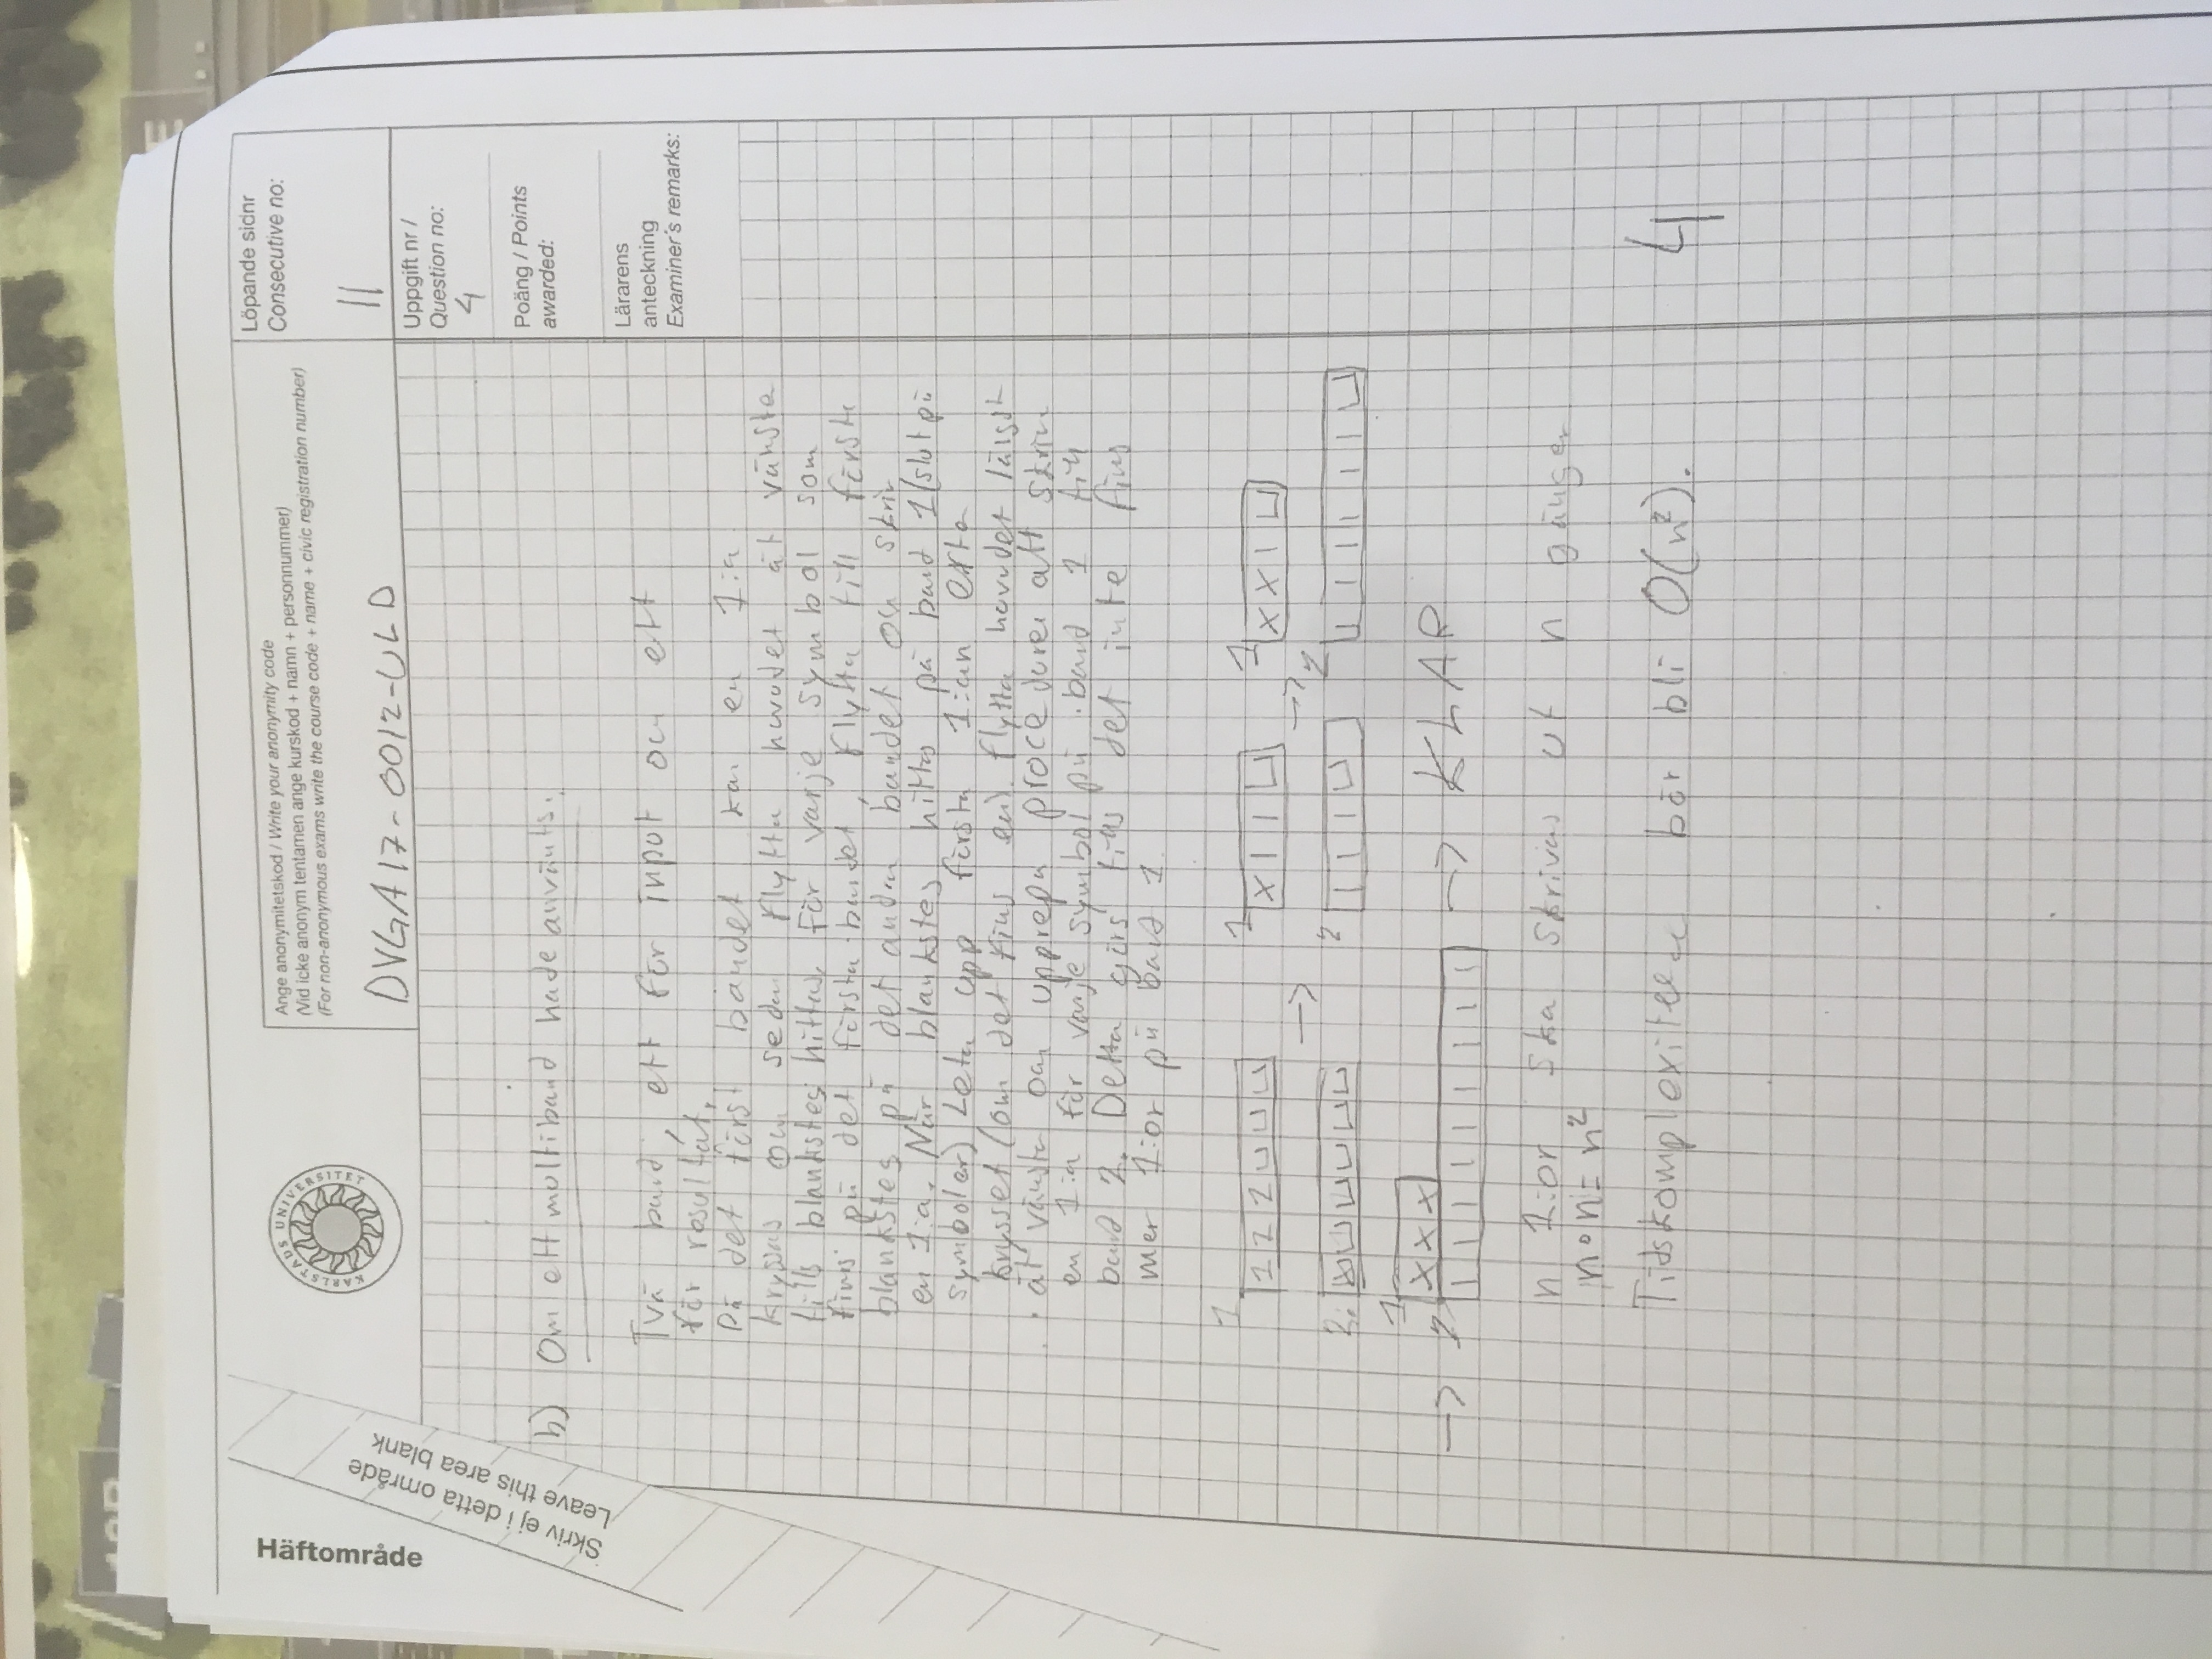 Häftområde
Skriv ej i detta område
Leave this area blank
KARLSTADS UNIVERSITET
Ange anonymitetskod / Write your anonymity code
(Vid icke anonym tentamen ange kurskod + namn + personnummer)
(For non-anonymous exams write the course code + name + civic registration number)
DVGA17-0012-ULD
Löpande sidnr
Consecutive no:
11
Uppgift nr /
Question no:
4
Poäng / Points
awarded:
Lärarens
anteckning
Examiner's remarks:
b) Om ett multiband hade använts.
Två band, ett för input och ett
för resultat.
På det först bandet kan en 1:a
kryssas och sedan flytta huvudet åt vänster
tills blanksteg hittas. För varje symbol som
finns på det första bandet, flytta till första
blanksteg på det andra bandet och skriv
en 1:a. När blanksteg hittas på band 1 (slut på
symboler) Leta upp första 1:an efter
krysset (om det finns en). flytta huvudet längst
åt vänster och upprepa proceduren att skriva
en 1:a för varje symbol på band 1 till
band 2. Detta görs tills det inte finns
mer 1:or på band 1.
1 1 1 1 ⊔ ⊔ ⊔
2: ⊔ ⊔ ⊔ ⊔ ⊔
→
1 X 1 1 ⊔
2 1 1 1 ⊔
→
1 X X 1 ⊔
2 1 1 1 1 1 1 ⊔
→
1 X X X
2 1 1 1 1 1 1 1 1 1
→ KLAR
n 1:or ska skrivas ut n gånger
n · n = n²
Tidskomplexiteten bör bli O(n²).
4